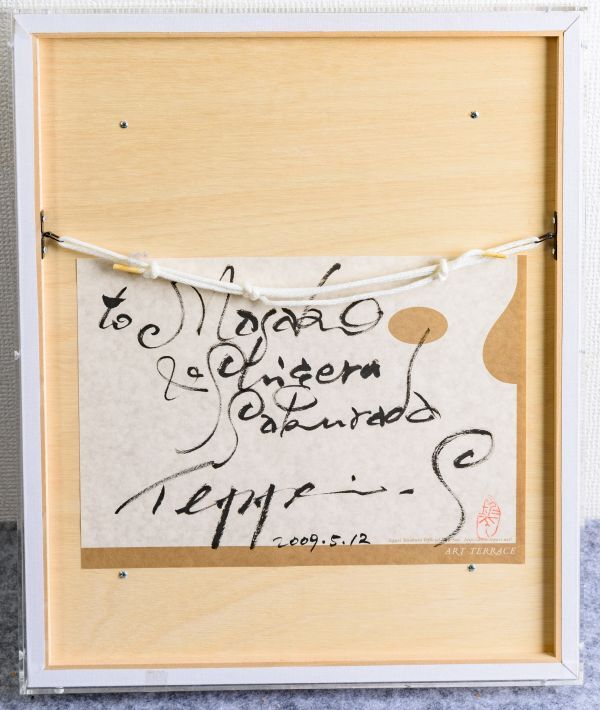 to Masako
& Shigeru
Sakurada
Teppei. S
2009.5.12
ART TERRACE